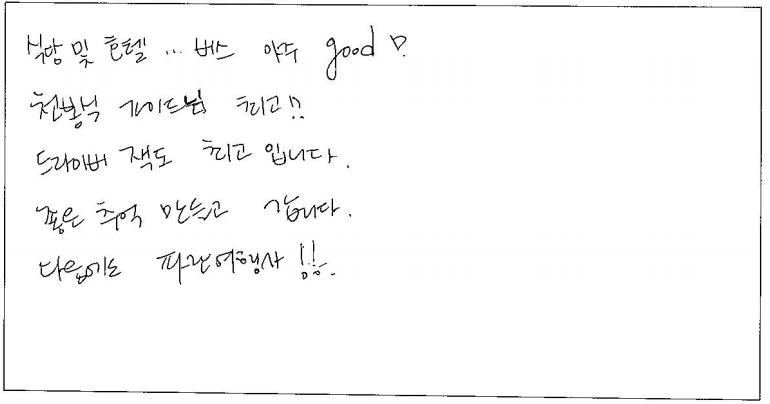 식당 및 호텔 ... 버스 아주 good♡
천봉석 가이드님 최고!!
드라이버 잭도 최고 입니다.
좋은 추억 만들고 갑니다.
다음에도 파란여행사!!